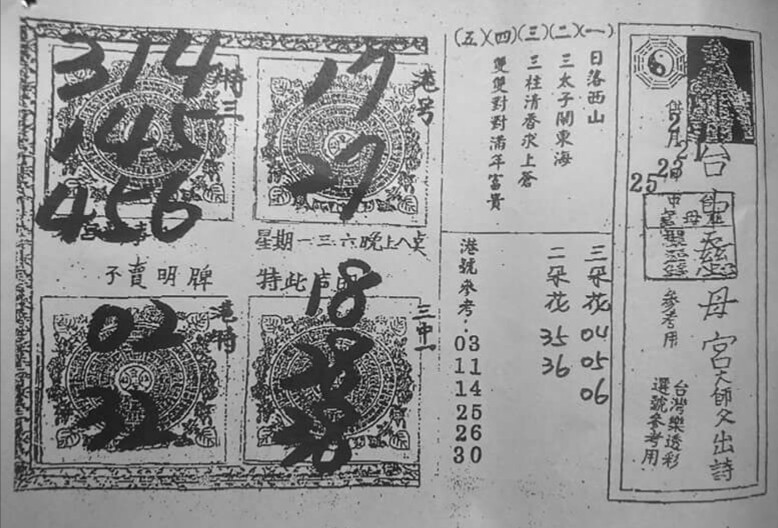 台灣慈母宮大師父出詩
2月21
23
25
參考用
台灣樂透彩
選號參考用
(一)日落西山
(二)三太子鬧東海
(三)三柱清香求上蒼
(四)雙雙對對滿年富貴
(五)
三朵花 04 05 06
二朵花 35 36
港號參考:03 11 14 25 26 30
港号
17
27
特三
314
145
456
星期一三六晚上八点
特此声明
子賣明牌
三中一
18
28
38
港特
02
32